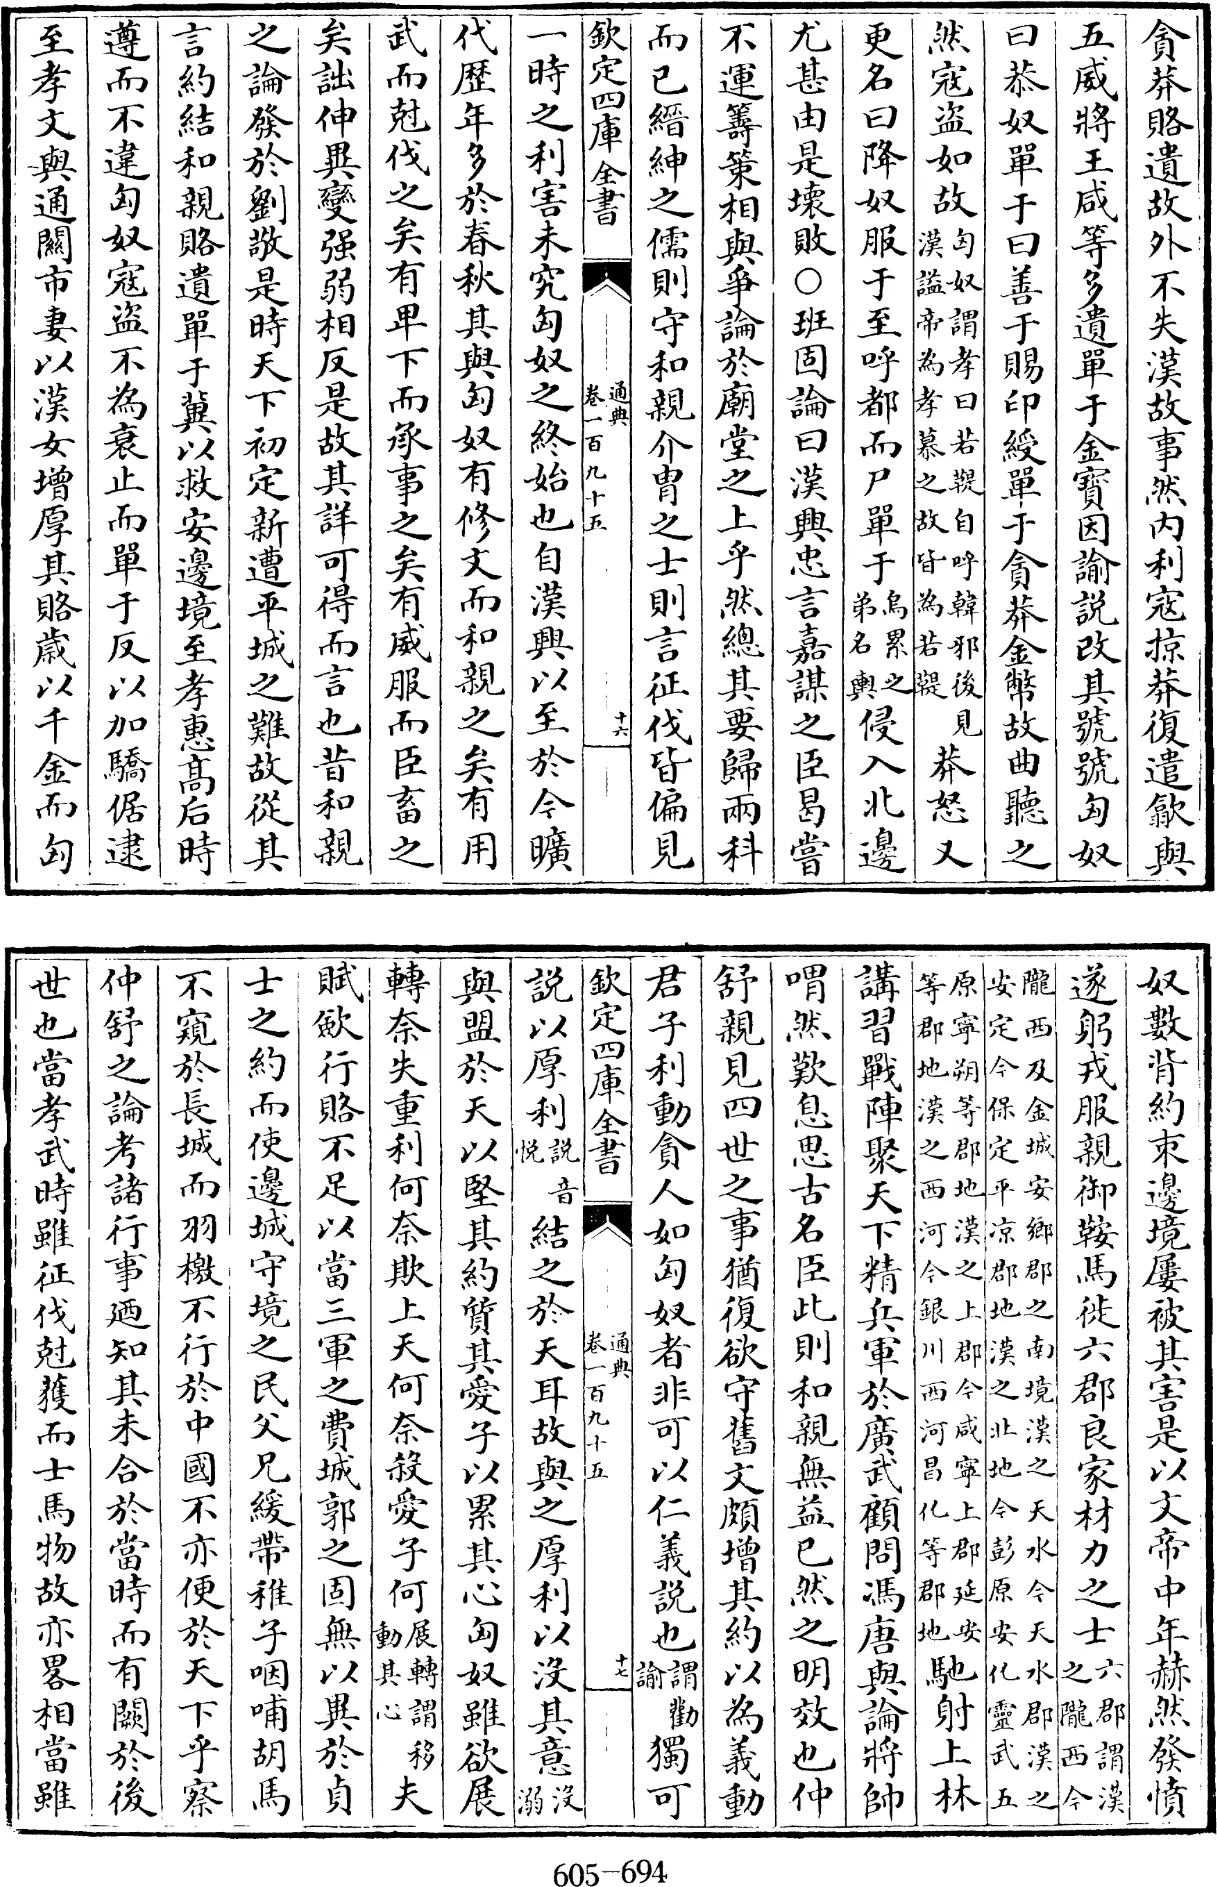 貪莽賂遺故外不失漢故事然内利寇掠莽復遣歙與
五威將王咸等多遺單于金寶因諭説改其號號匈奴
曰恭奴單于曰善于賜印綬單于貪莽金幣故曲聽之
然寇盗如故匈奴謂孝曰若鞮自呼韓邪後見漢謚帝為孝慕之故皆為若鞮莽怒又
更名曰降奴服于至呼都而尸單于烏累之弟名輿侵入北邊
尤甚由是壊敗○班固論曰漢興忠言嘉謀之臣曷嘗
不運籌策相與爭論於廟堂之上乎然總其要歸兩科
而已縉紳之儒則守和親介胄之士則言征伐皆偏見
欽定四庫全書
通典
卷一百九十五
十六
一時之利害未究匈奴之終始也自漢興以至於今曠
代歴年多於春秋其與匈奴有修文而和親之矣有用
武而尅伐之矣有卑下而承事之矣有威服而臣畜之
矣詘伸異變强弱相反是故其詳可得而言也昔和親
之論發於劉敬是時天下初定新遭平城之難故從其
言約結和親賂遺單于冀以救安邊境至孝惠髙后時
遵而不違匈奴寇盗不為衰止而單于反以加驕倨逮
至孝文與通關市妻以漢女增厚其賂歳以千金而匈
奴數背約束邊境屢被其害是以文帝中年赫然發憤
遂躬戎服親御鞍馬從六郡良家材力之士六郡謂漢之隴西今
隴西及金城安鄉郡之南境漢之天水今天水郡漢之安定今保定平凉郡地漢之北地今彭原安化靈武五
原寧朔等郡地漢之上郡今咸寧上郡延安等郡地漢之西河今銀川西河昌化等郡地馳射上林
講習戰陣聚天下精兵軍於廣武顧問馮唐與論將帥
喟然歎息思古名臣此則和親無益已然之明效也仲
舒親見四世之事猶復欲守舊文頗增其約以為義動
君子利動貪人如匈奴者非可以仁義説也謂勸諭獨可
欽定四庫全書
通典
卷一百九十五
十七
説以厚利説音悦結之於天耳故與之厚利以沒其意沒溺
與盟於天以堅其約質其愛子以累其心匈奴雖欲展
轉奈失重利何奈欺上天何奈殺愛子何展轉謂移動其心夫
賦斂行賂不足以當三軍之費城郭之固無以異於貞
士之約而使邊城守境之民父兄緩帶稚子咽哺胡馬
不窺於長城而羽檄不行於中國不亦便於天下乎察
仲舒之論考諸行事廼知其未合於當時而有闕於後
世也當孝武時雖征伐尅獲而士馬物故亦畧相當雖
605-694